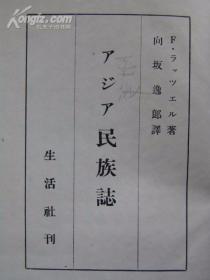 F・ラッツエル著
向坂逸郎譯
アジア民族誌
生活社刊